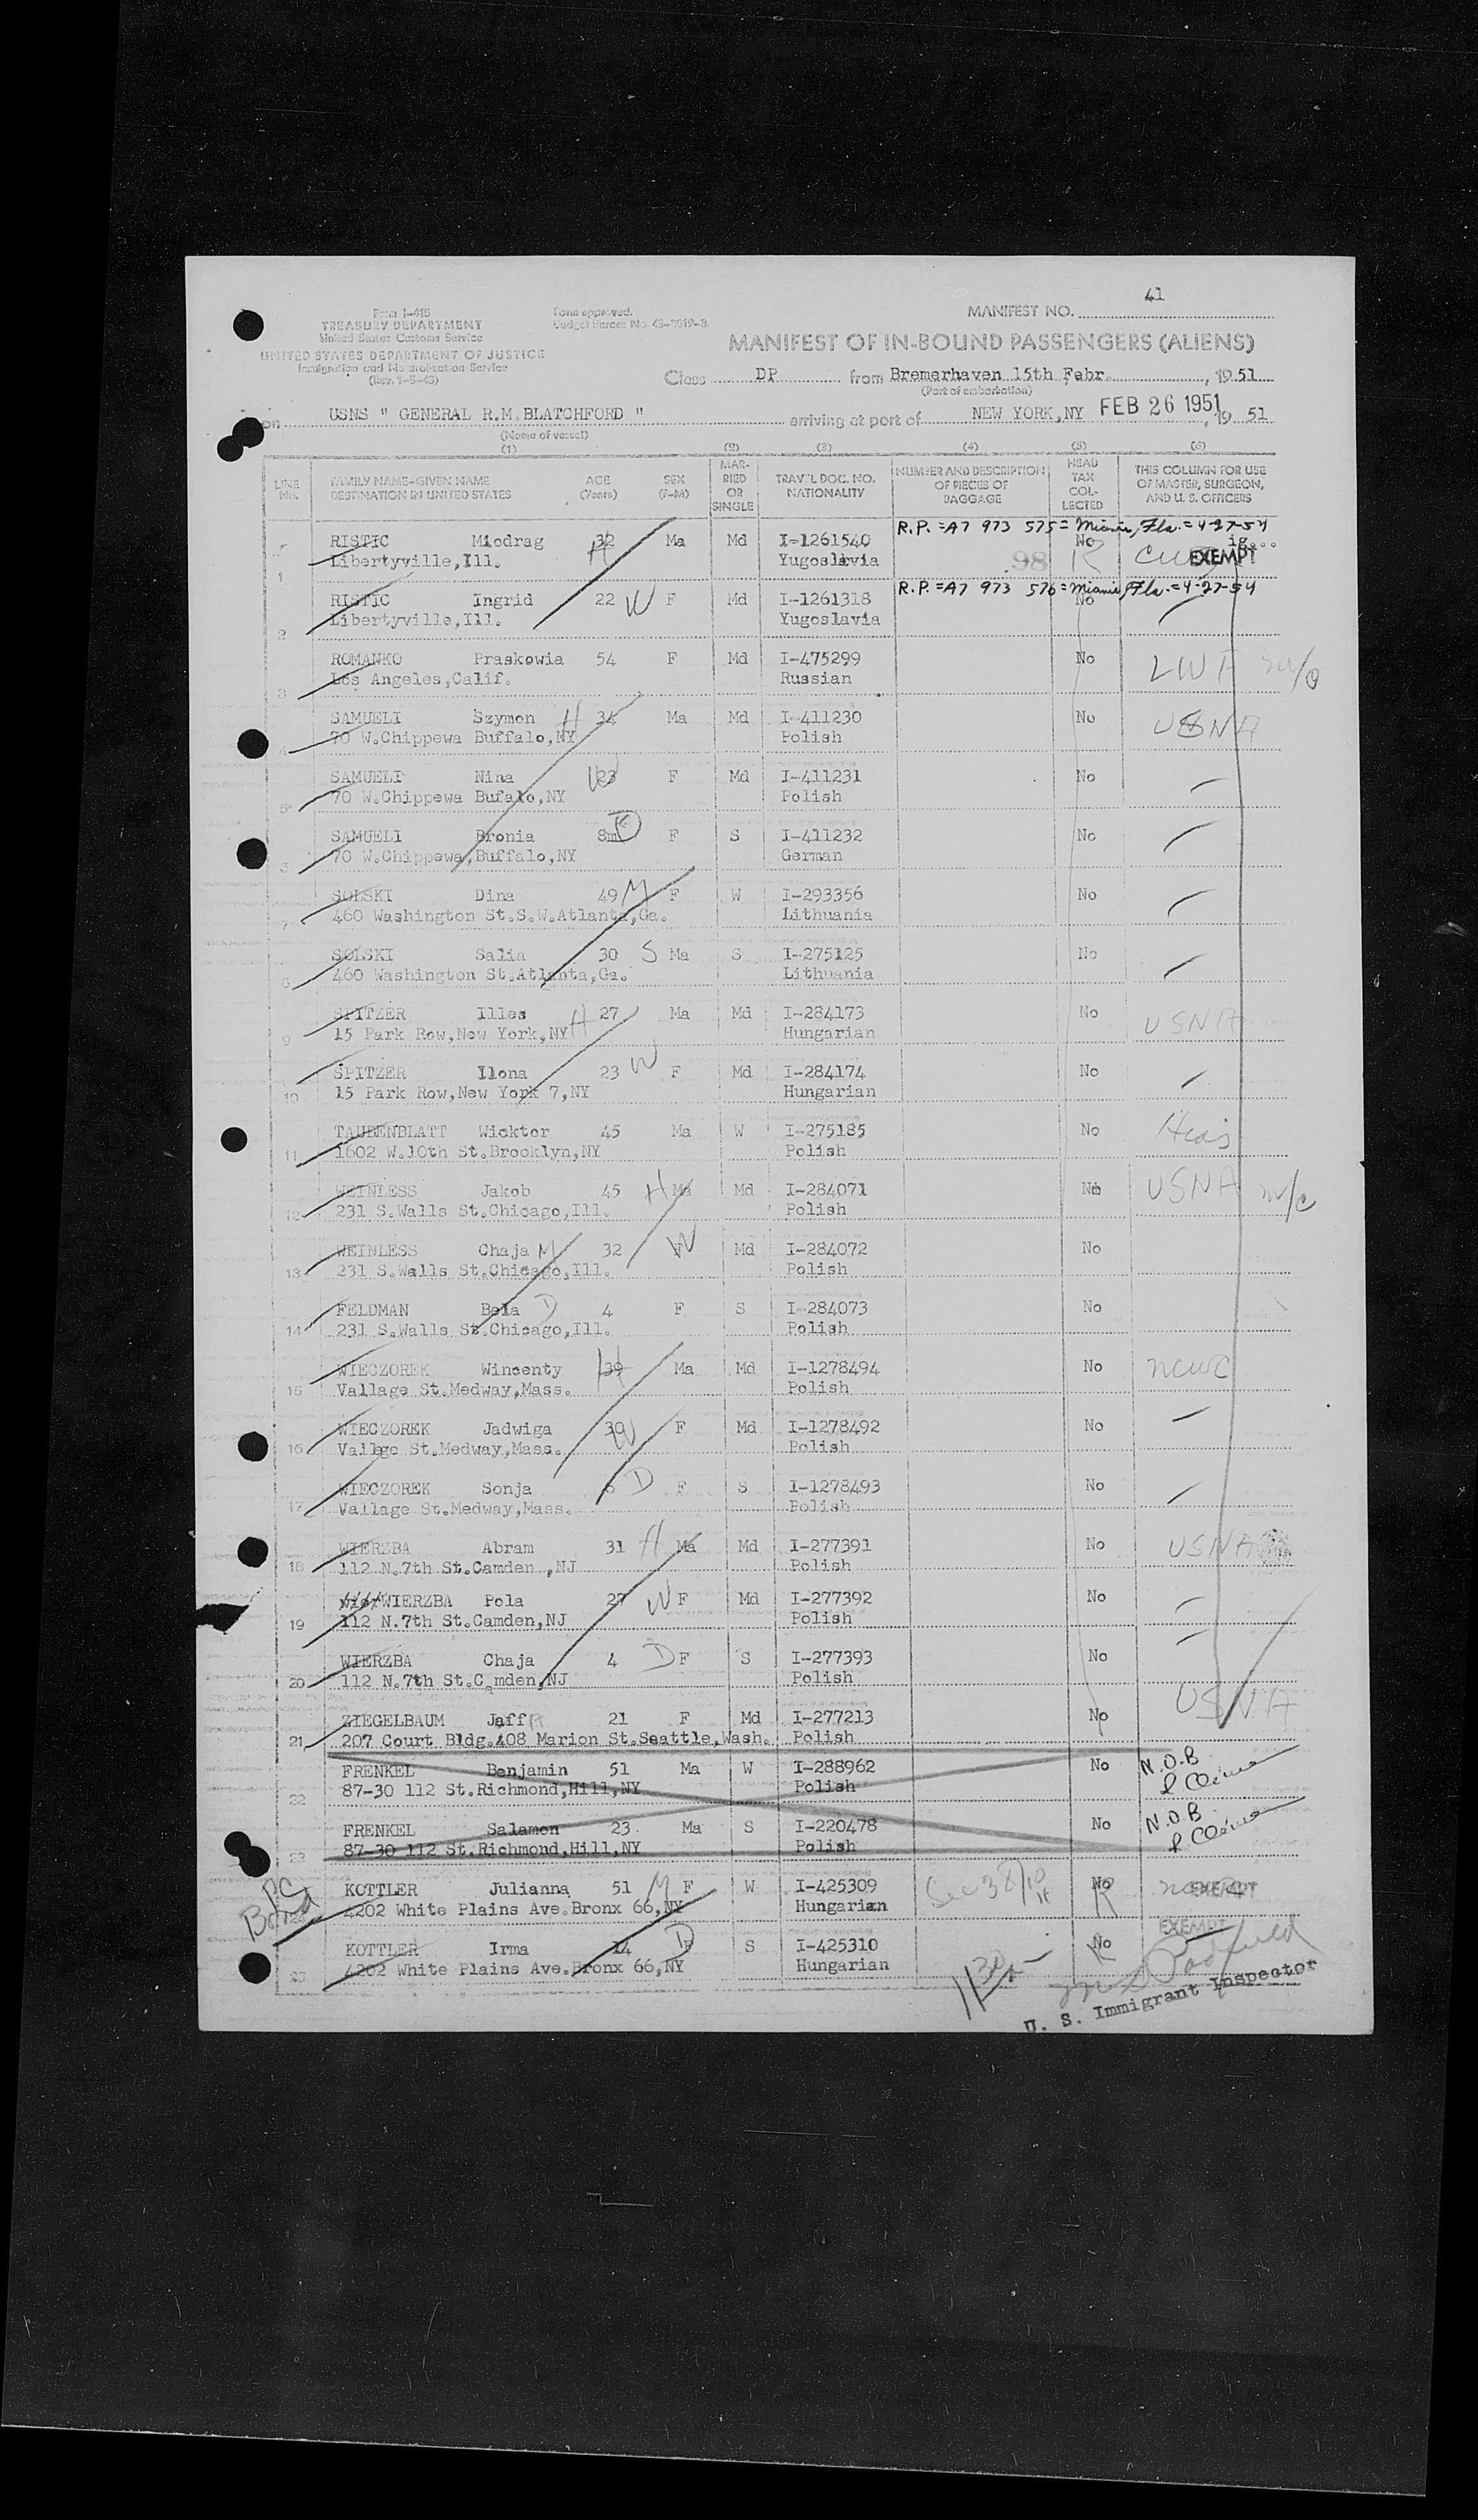 41
MANIFEST NO.
Form I-415
TREASURY DEPARTMENT
United States Customs Service
UNITED STATES DEPARTMENT OF JUSTICE
Immigration and Naturalization Service
Form approved.
MANIFEST OF IN-BOUND PASSENGERS (ALIENS)
Class DP from Bremerhaven 15th Febr. , 1951
(Port of embarkation)
on USNS " GENERAL R.M.BLATCHFORD " arriving at port of NEW YORK,NY FEB 26 1951 , 1951
(Name of vessel)
(1) (2) (3) (4) (5) (6)
LINE No. FAMILY NAME-GIVEN NAME DESTINATION IN UNITED STATES AGE (Years) SEX (F-M) MARRIED OR SINGLE TRAVEL DOC. NO. NATIONALITY NUMBER AND DESCRIPTION OF PIECES OF BAGGAGE HEAD TAX COLLECTED THIS COLUMN FOR USE OF MASTER, SURGEON, AND U. S. OFFICERS
R.P.=A7 973 575= Miami, Fla.=4-27-54
RISTIC Miodrag 32 H Ma Md I-1261540 No
1 Libertyville,Ill. Yugoslavia 98 R EXEMPT
R.P.=A7 973 576=Miami, Fla.=4-27-54
RISTIC Ingrid 22 W F Md I-1261318 No
2 Libertyville,Ill. Yugoslavia
ROMANKO Praskowia 54 F Md I-475299 No LWF
3 Los Angeles,Calif. Russian
SAMUELI Szymon H 34 Ma Md I-411230 No USNA
4 70 W.Chippewa Buffalo,NY Polish
SAMUELI Nina W 23 F Md I-411231 No
5 70 W.Chippewa Bufalo,NY Polish
SAMUELI Bronia 8m F S I-411232 No
70 W.Chippewa,Buffalo,NY German
SOLSKI Dina 49 M F W I-293356 No
7 460 Washington St.S.W.Atlanta,Ga. Lithuania
SOLSKI Salia 30 S Ma S I-275125 No
8 460 Washington St.Atlanta,Ga. Lithuania
SPITZER Illes 27 Ma Md I-284173 No USNA
9 15 Park Row,New York,NY H Hungarian
SPITZER Ilona 23 W F Md I-284174 No
10 15 Park Row,New York 7,NY Hungarian
TAUBENBLATT Wicktor 45 Ma W I-275185 No Hias
11 1602 W.10th St.Brooklyn,NY Polish
WEINLESS Jakob 45 H Ma Md I-284071 No USNA
12 231 S.Walls St.Chicago,Ill. Polish
WEINLESS Chaja M 32 W Md I-284072 No
13 231 S.Walls St.Chicago,Ill. Polish
FELDMAN Bela D 4 F S I-284073 No
14 231 S.Walls St.Chicago,Ill. Polish
WIECZOREK Wincenty H 39 Ma Md I-1278494 No NCWC
15 Vallage St.Medway,Mass. Polish
WIECZOREK Jadwiga 30 W F Md I-1278492 No
16 Vallge St.Medway,Mass. Polish
WIECZOREK Sonja D F S I-1278493 No
17 Vallage St.Medway,Mass. Polish
WIERZBA Abram 31 H Ma Md I-277391 No USNA
18 112 N.7th St.Camden ,NJ Polish
WIERZBA Pola 27 W F Md I-277392 No
19 112 N.7th St.Camden,NJ Polish
WIERZBA Chaja 4 D F S I-277393 No
20 112 N.7th St.Camden,NJ Polish
ZIEGELBAUM Jaff 21 F Md I-277213 No USNA
21 207 Court Bldg.408 Marion St.Seattle,Wash. Polish
FRENKEL Benjamin 51 Ma W I-288962 No N.O.B
22 87-30 112 St.Richmond,Hill,NY Polish
FRENKEL Salamon 23 Ma S I-220478 No N.O.B
23 87-30 112 St.Richmond,Hill,NY Polish
KOTTLER Julianna 51 M F W I-425309 No EXEMPT
4202 White Plains Ave.Bronx 66,NY Hungarian R
EXEMPT
KOTTLER Irma 14 D S I-425310 No
25 4202 White Plains Ave.Bronx 66,NY Hungarian
U. S. Immigrant Inspector